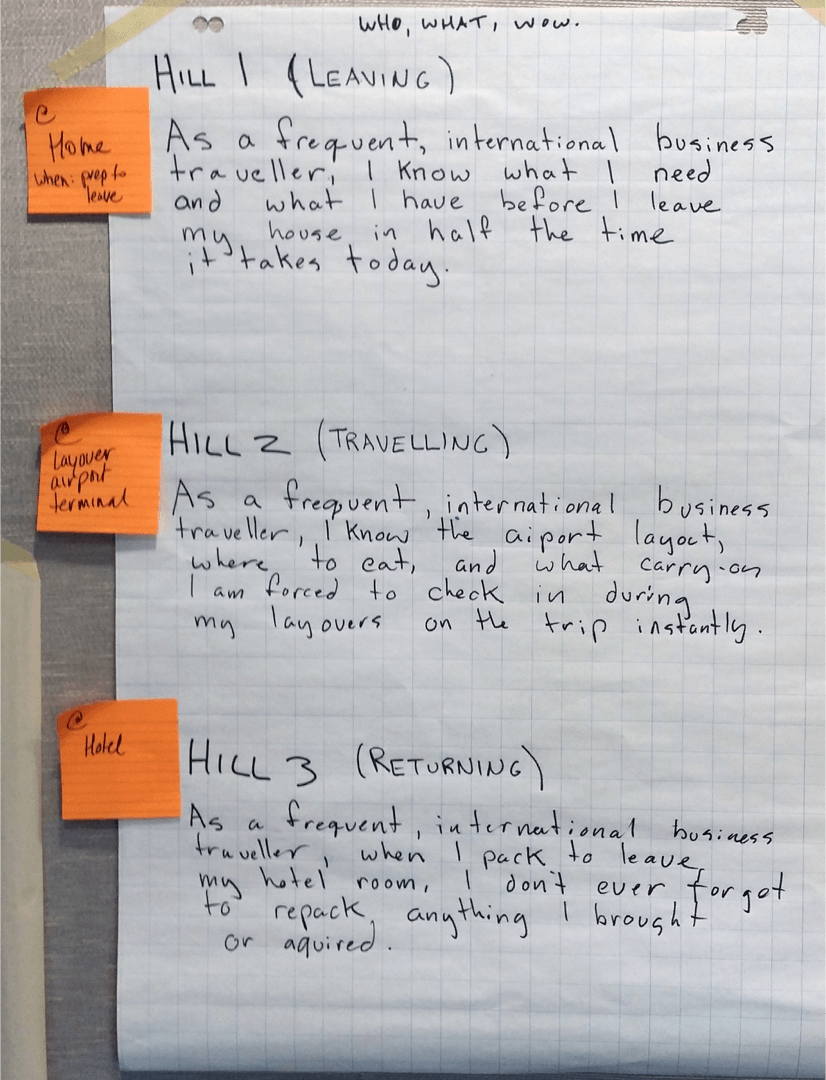 WHO, WHAT, WOW.
HILL 1 (LEAVING)
@
Home
when: prep to
leave
As a frequent, international business
traveller, I know what I need
and what I have before I leave
my house in half the time
it takes today.
HILL 2 (TRAVELLING)
@
Layover
airport
terminal
As a frequent, international business
traveller, I know the aiport layout,
where to eat, and what carry-on
I am forced to check in during
my layovers on the trip instantly.
HILL 3 (RETURNING)
@
Hotel
As a frequent, international business
traveller, when I pack to leave
my hotel room, I don't ever forgot
to repack anything I brought
or aquired.